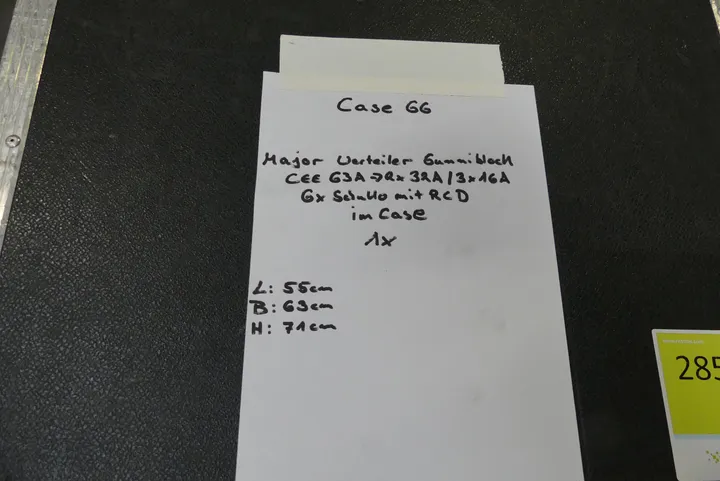 Case 66
Major Verteiler Gummiblock
CEE 63A → 2x 32A / 3x16A
6x Schuko mit RCD
im Case
1x
L: 55cm
B: 63cm
H: 71cm
285